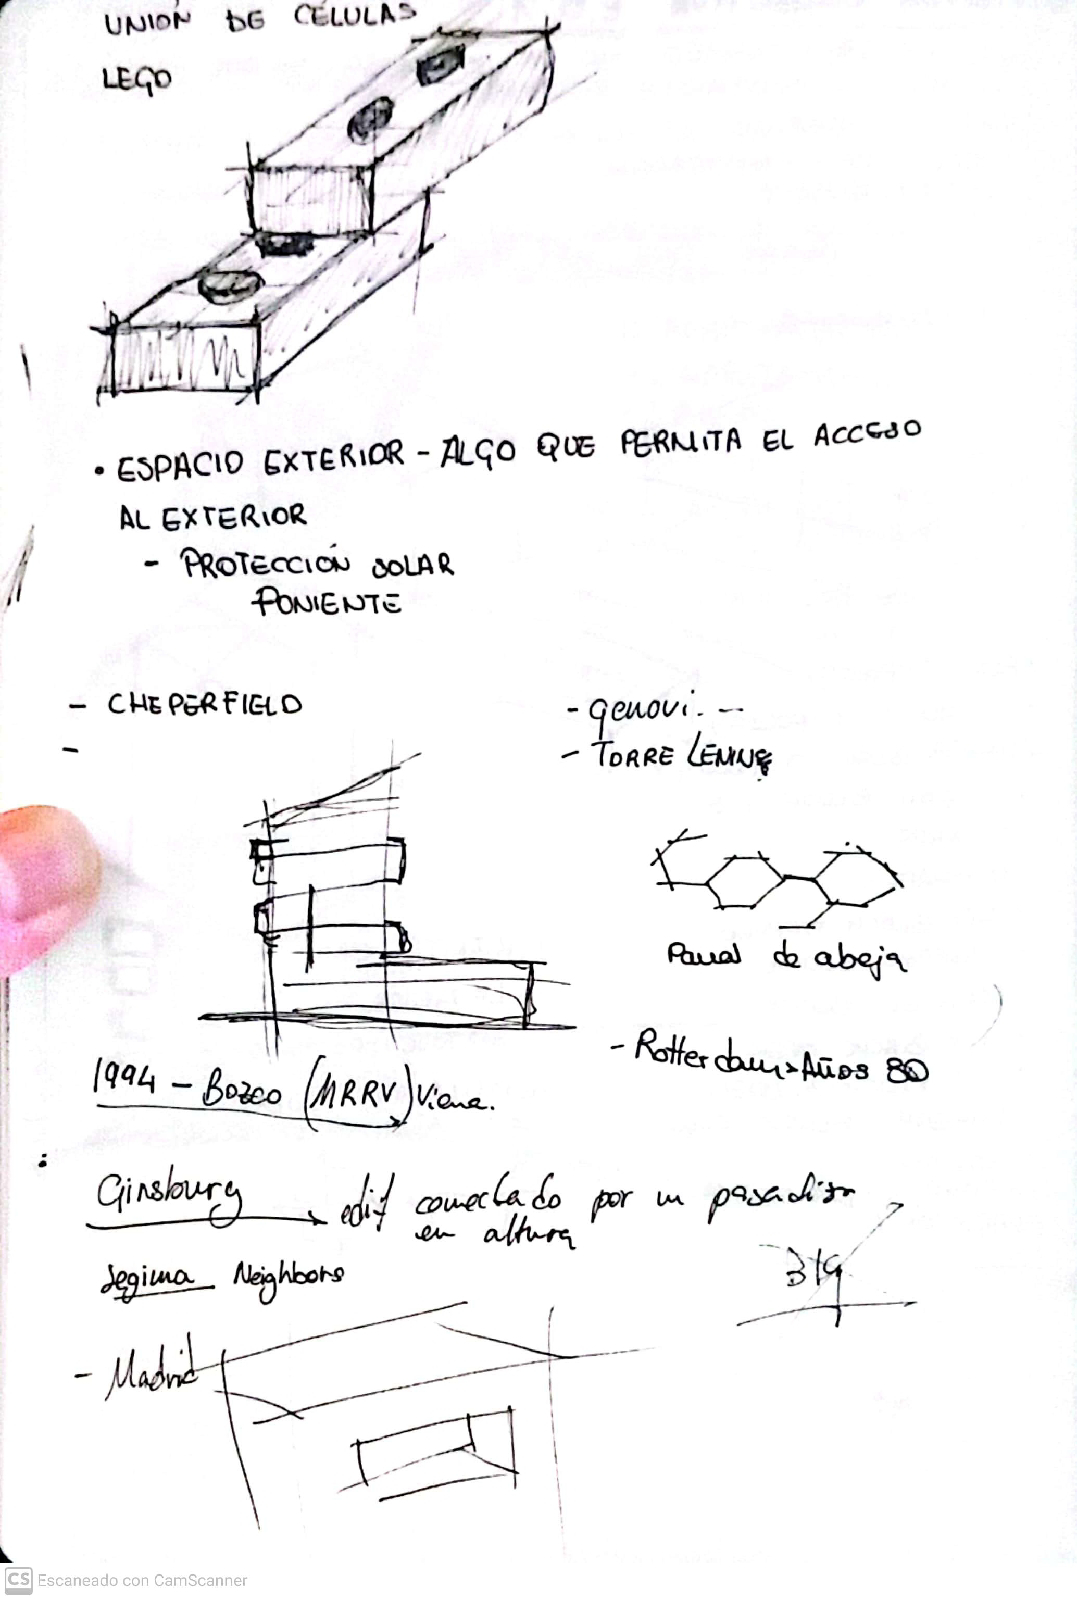 UNIÓN DE CÉLULAS
LEGO
• ESPACIO EXTERIOR - ALGO QUE PERMITA EL ACCESO
AL EXTERIOR
- PROTECCIÓN SOLAR
PONIENTE
- CHEPERFIELD
-
- genovi. --
- TORRE
Panal de abeja
- Rotterdam > Años 80
1994 - Bozco (MRRV) Viena.
Ginsburg edif conectado por un pasadizo
en altura
Segima Neighbors
- Madrid
CS Escaneado con CamScanner